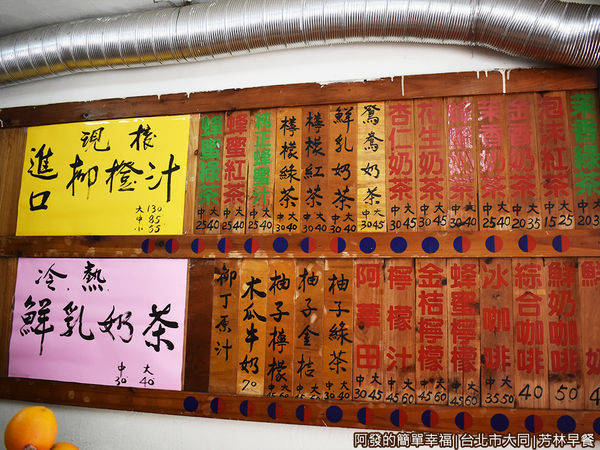 進口
現榨
柳橙汁
大130
中85
小55
蜂蜜綠茶
中大
25 40
蜂蜜紅茶
中大
25 40
純正蜂蜜汁
中大
25 40
檸檬綠茶
中大
30 40
檸檬紅茶
中大
30 40
鮮乳奶茶
中大
30 40
鴛鴦奶茶
中大
30 45
杏仁奶茶
中大
30 40
花生奶茶
中大
30 40
奶茶
中大
30 40
奶茶
中大
25 40
奶茶
中大
20 35
紅茶
中大
15 25
綠茶
中大
20 3
冷.熱
鮮乳奶茶
中大
30 40
柳丁原汁
木瓜牛奶
70
柚子檸檬
柚子金桔
柚子綠茶
中大
30 45
阿華田
中大
30 45
檸檬汁
中大
30 40
金桔檸檬
中大
30 40
蜂蜜檸檬
中大
30 45
冰咖啡
中大
35 50
綜合咖啡
40
鮮奶咖啡
50
鮮奶
阿發的簡單幸福|台北市大同|芳林早餐